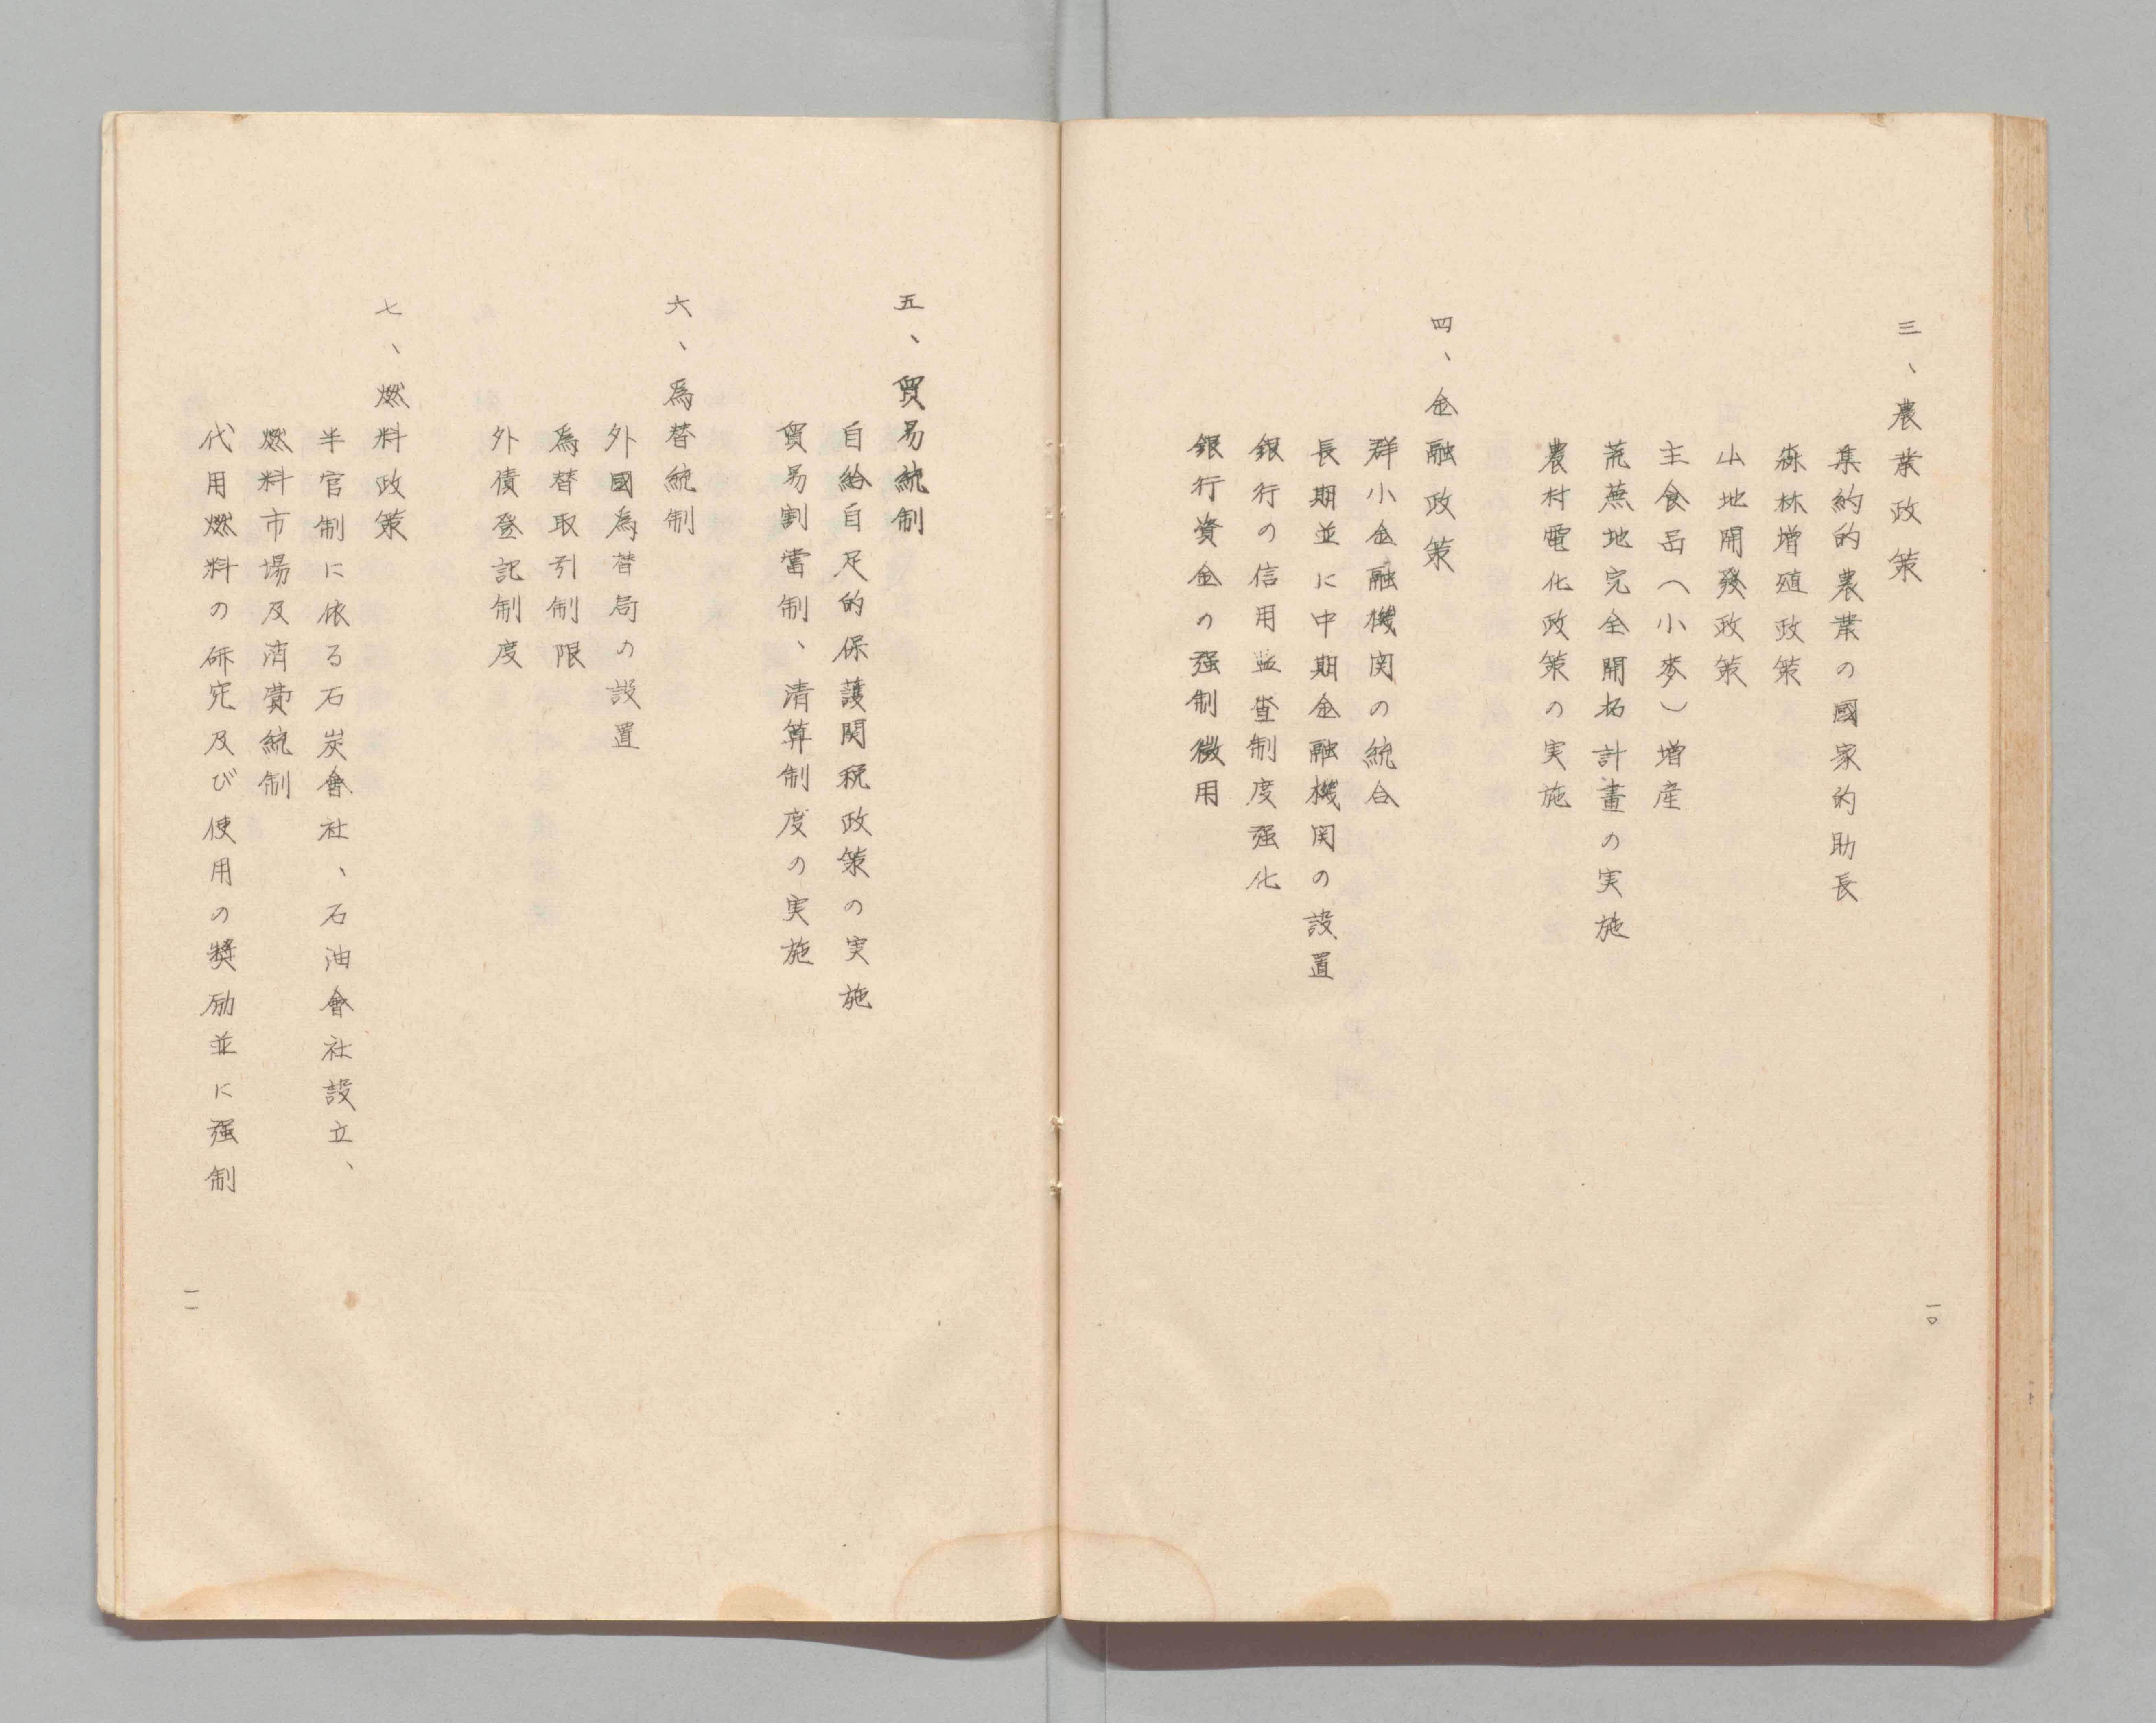 三、農業政策
集約的農業の國家的助長
森林増殖政策
山地開發政策
主食品（小麥）増産
荒蕪地完全開拓計畫の実施
農村電化政策の実施
四、金融政策
群小金融機関の統合
長期並に中期金融機関の設置
銀行の信用監査制度强化
銀行資金の强制徴用
一〇
五、貿易統制
自給自足的保護関税政策の実施
貿易割當制、清算制度の実施
六、爲替統制
外國爲替局の設置
爲替取引制限
外債登記制度
七、燃料政策
半官制に依る石炭會社、石油會社設立、
燃料市場及消費統制
代用燃料の研究及び使用の奬励並に强制
一一